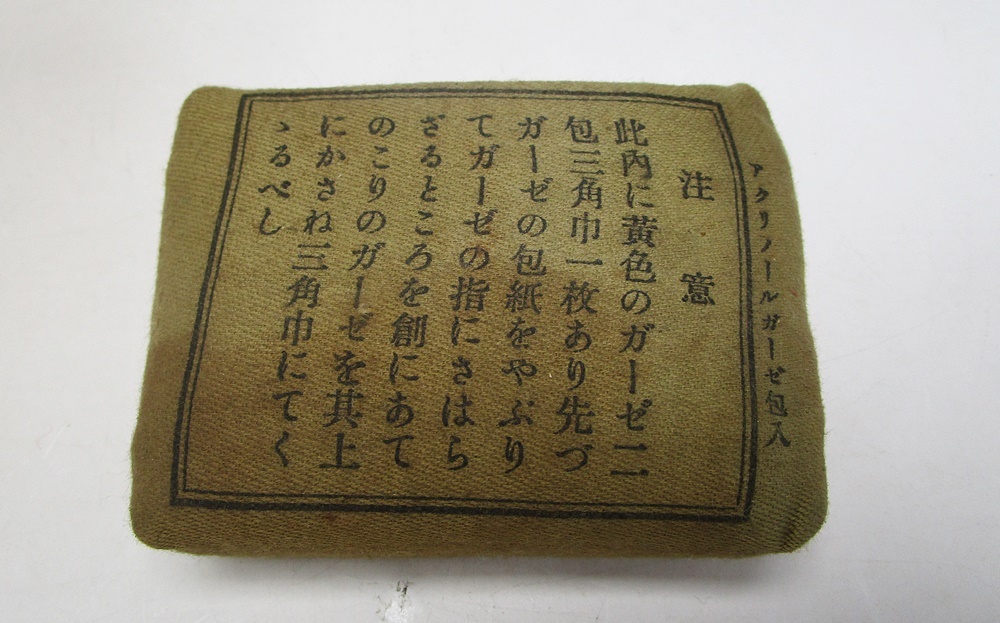 アクリノールガーゼ包入
注意
此内に黄色のガーゼ二
包三角巾一枚あり先づ
ガーゼの包紙をやぶり
てガーゼの指にさはら
ざるところを創にあて
のこりのガーゼを其上
にかさね三角巾にてく
ゝるべし